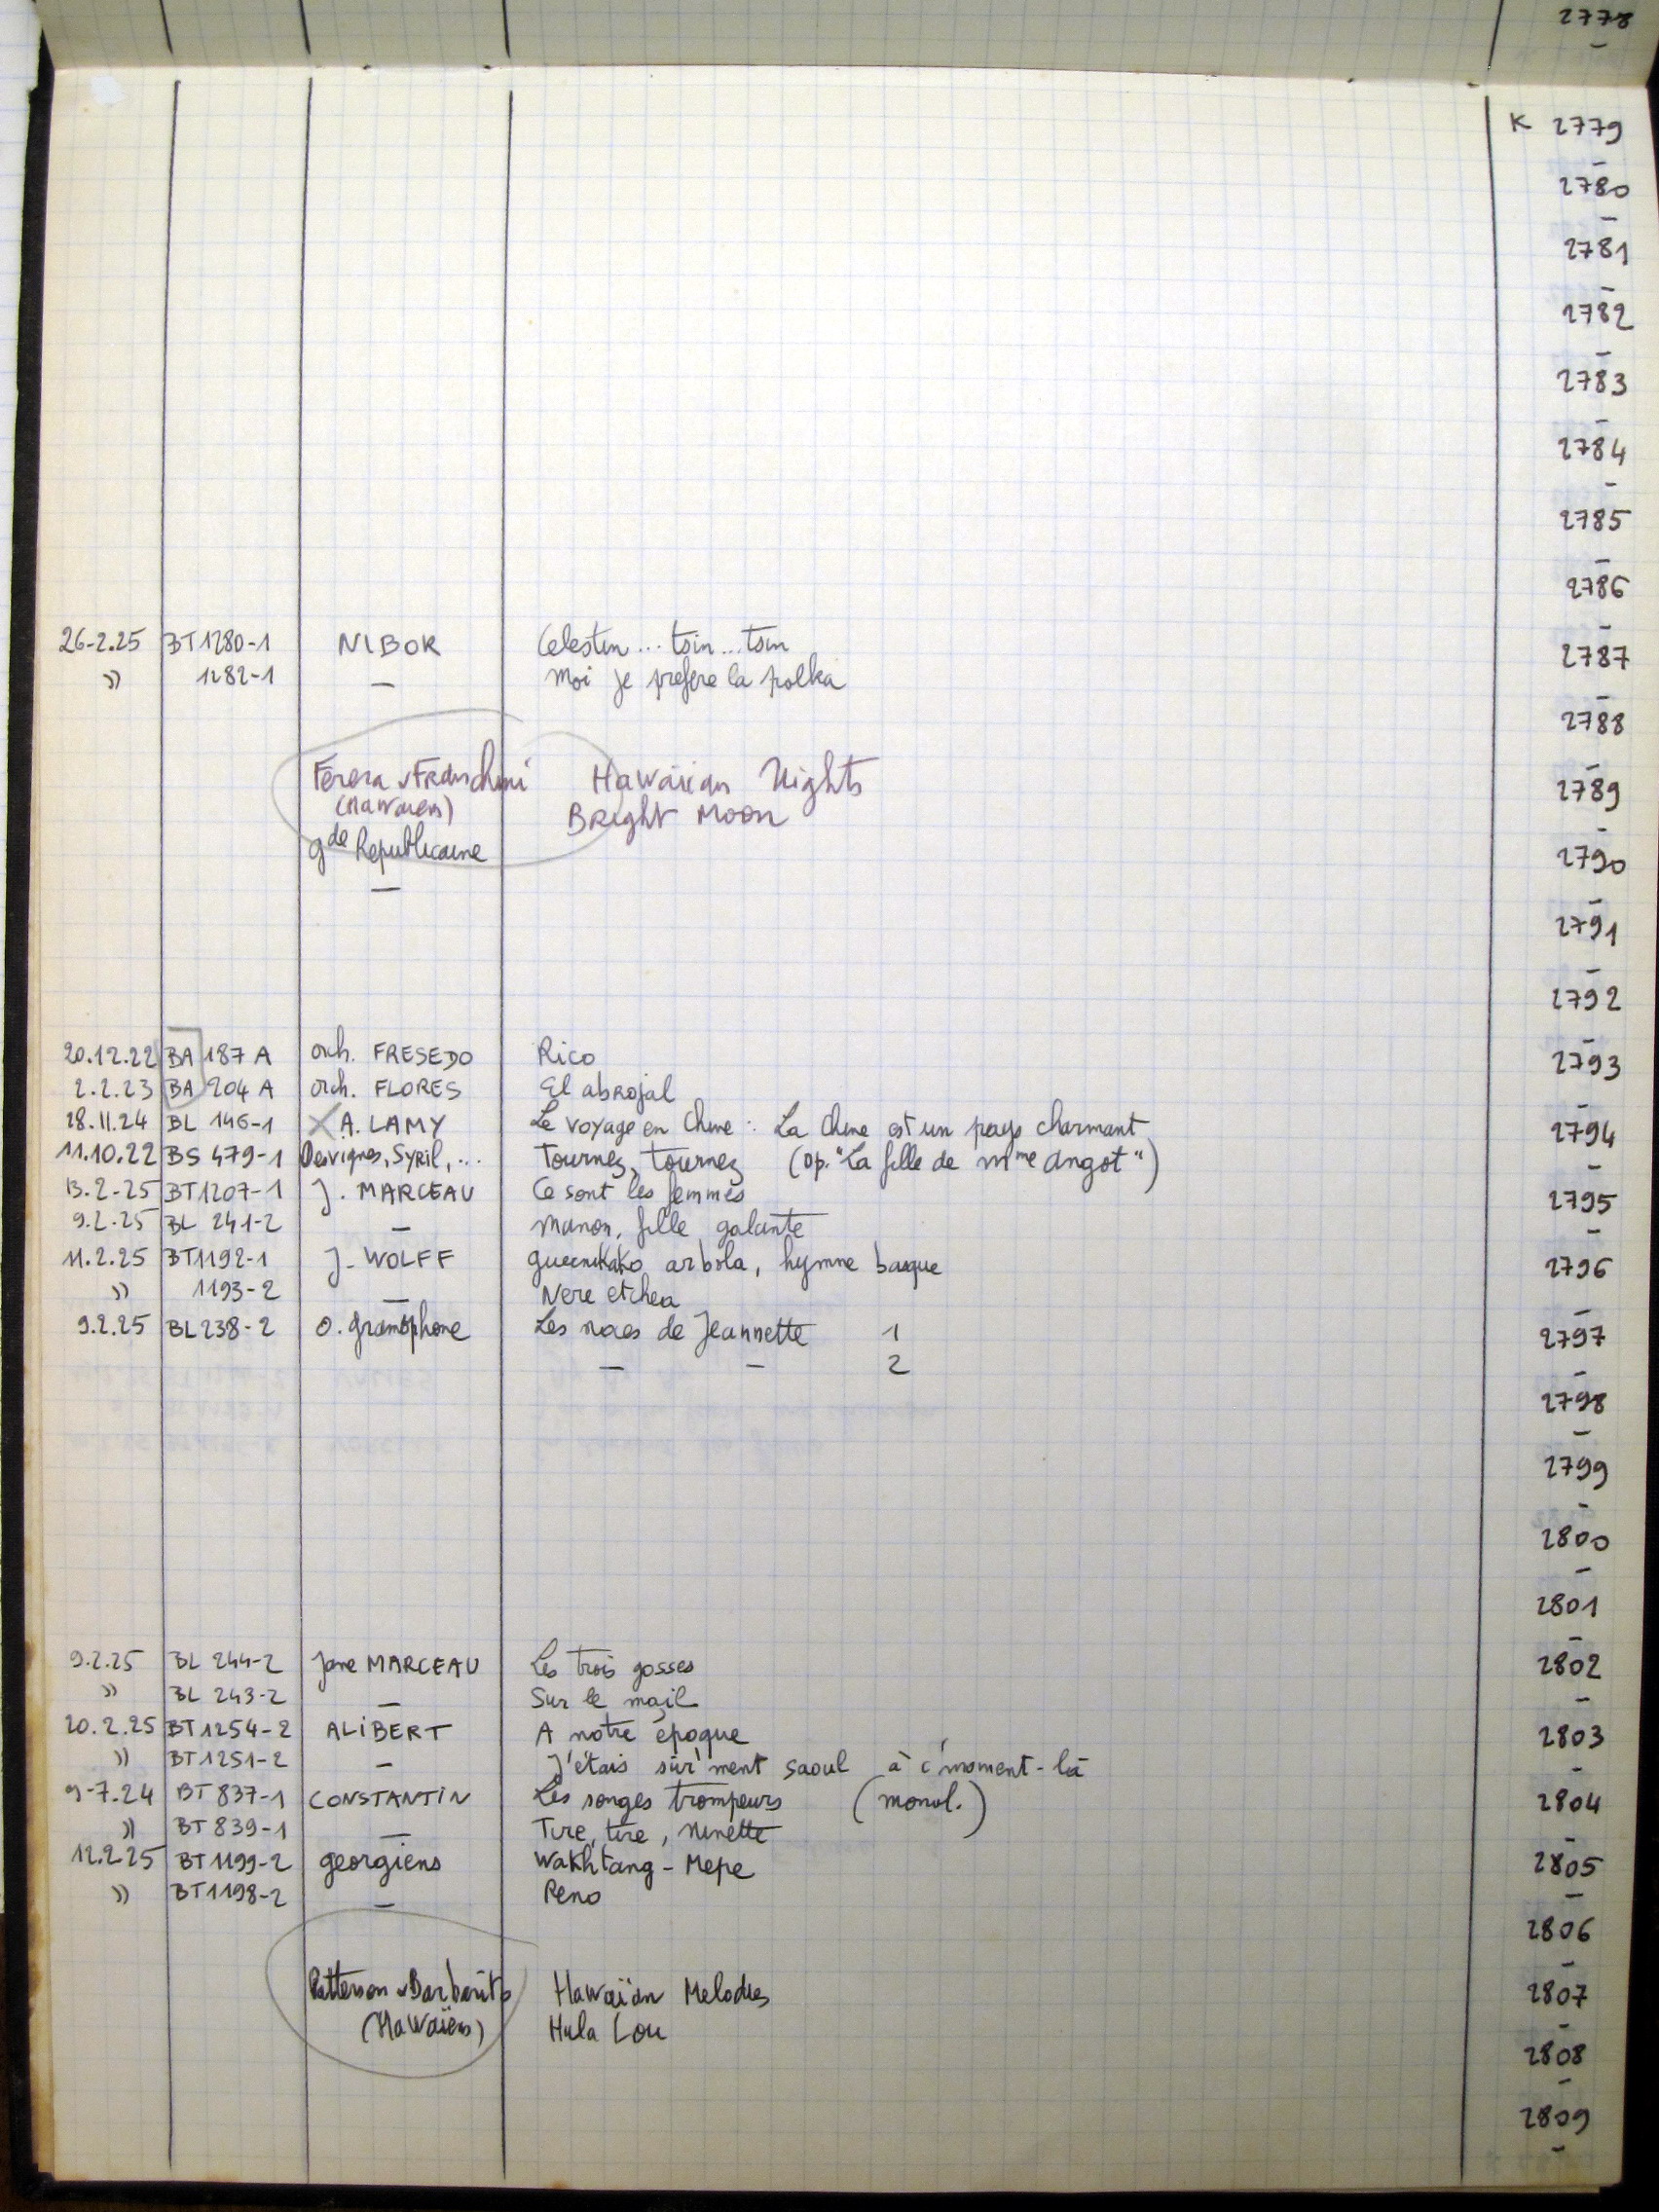 2778
–
K 2779
–
2780
–
2781
–
2782
–
2783
–
2784
–
2785
–
2786
–
26-2.25 BT1280-1 NIBOR Celestin... tsin... tsin 2787
» 1282-1 – Moi je prefere la polka –
2788
–
Ferera & Franchini Hawaiian Nights 2789
(Hawaiens) Bright Moon –
gde Republicaine 2790
– –
2791
–
2792
–
20.12.22 BA 187 A orch. FRESEDO Rico 2793
2.2.23 BA 204 A orch. FLORES El abrojal –
28.11.24 BL 146-1 X A. LAMY Le voyage en Chine : La Chine est un pays charmant 2794
11.10.22 BS 479-1 Desvignes, Syril, ... Tournez, tournez (op. "La fille de Mme Angot") –
13.2-25 BT1207-1 J. MARCEAU Ce sont les femmes 2795
9.2.25 BL 241-2 – Manon, fille galante –
11.2.25 BT1192-1 J. WOLFF guernikako arbola, hymne basque 2796
» 1193-2 – Nere etchea –
9.2.25 BL238-2 O. gramophone Les noces de Jeannette 1 2797
– – 2 –
2798
–
2799
–
2800
–
2801
–
9.2.25 BL 244-2 Jane MARCEAU Les trois gosses 2802
» BL 243-2 – Sur le mail –
20.2.25 BT1254-2 ALIBERT A notre époque 2803
» BT1251-2 – J'étais sûr'ment saoul à c'moment-là –
9-7.24 BT 837-1 CONSTANTIN Les songes trompeurs (monol.) 2804
» BT 839-1 – Tire, tire, Ninette –
12.2.25 BT1199-2 georgiens Wakhtang-Mepe 2805
» BT1198-2 – Reno –
2806
–
Patterson & Barbarito Hawaïan Melodies 2807
(Hawaïens) Hula Lou –
2808
–
2809
–